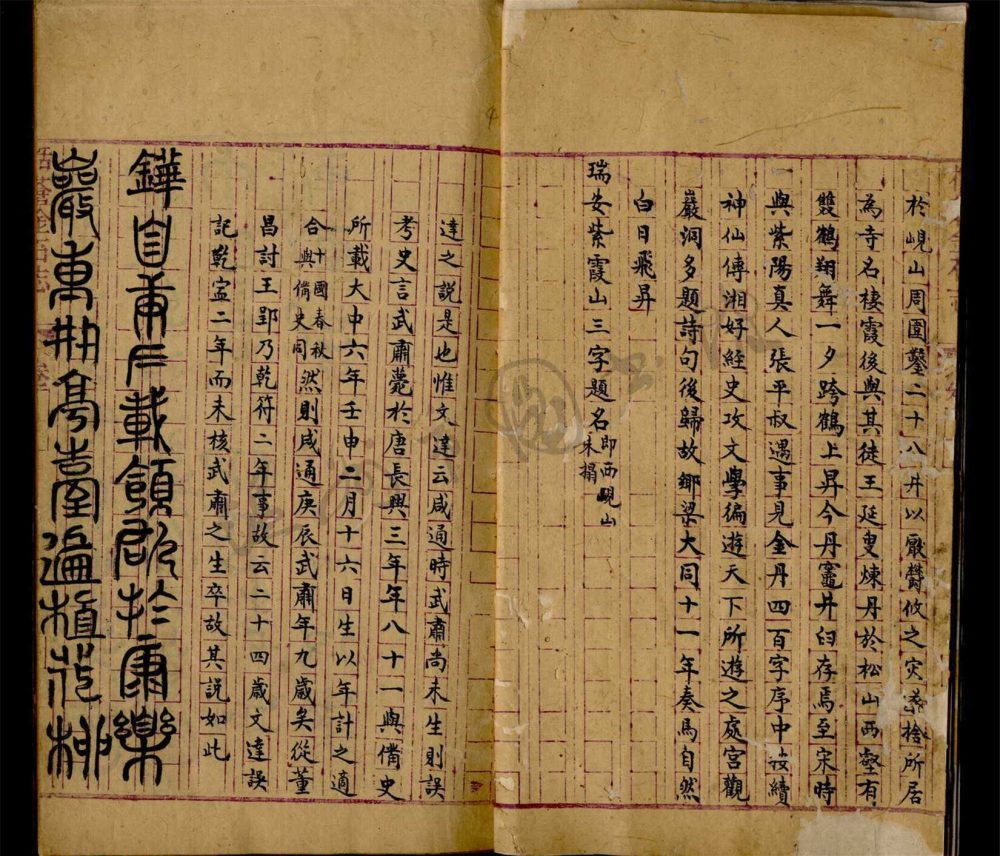 於峴山周圍鑿二十八井以厭欝攸之災系捨所居
為寺名棲霞後與其徒王延叟煉丹於松山西壑有
雙鶴翔舞一夕跨鶴上昇今丹竈井臼存焉至宋時
與紫陽真人張平叔遇事見金丹四百字序中按續
神仙傳湘好經史攻文學徧遊天下所遊之處宮觀
巖洞多題詩句後歸故鄉梁大同十一年奏馬自然
白日飛昇
瑞安紫霞山三字題名即西峴山未搨
達之説是也惟文達云咸通時武肅尚未生則誤
考史言武肅薨於唐長興三年年八十一與備史
所載大中六年壬申二月十六日生以年計之適
合十國春秋與備史同然則咸通庚辰武肅年九歲矣從董
昌討王郢乃乾符二年事故云二十四歲文達誤
記乾寧二年而未核武肅之生卒故其説如此
鏵自秉斤載領郡於康樂
巖東刱亭臺遍植花柳